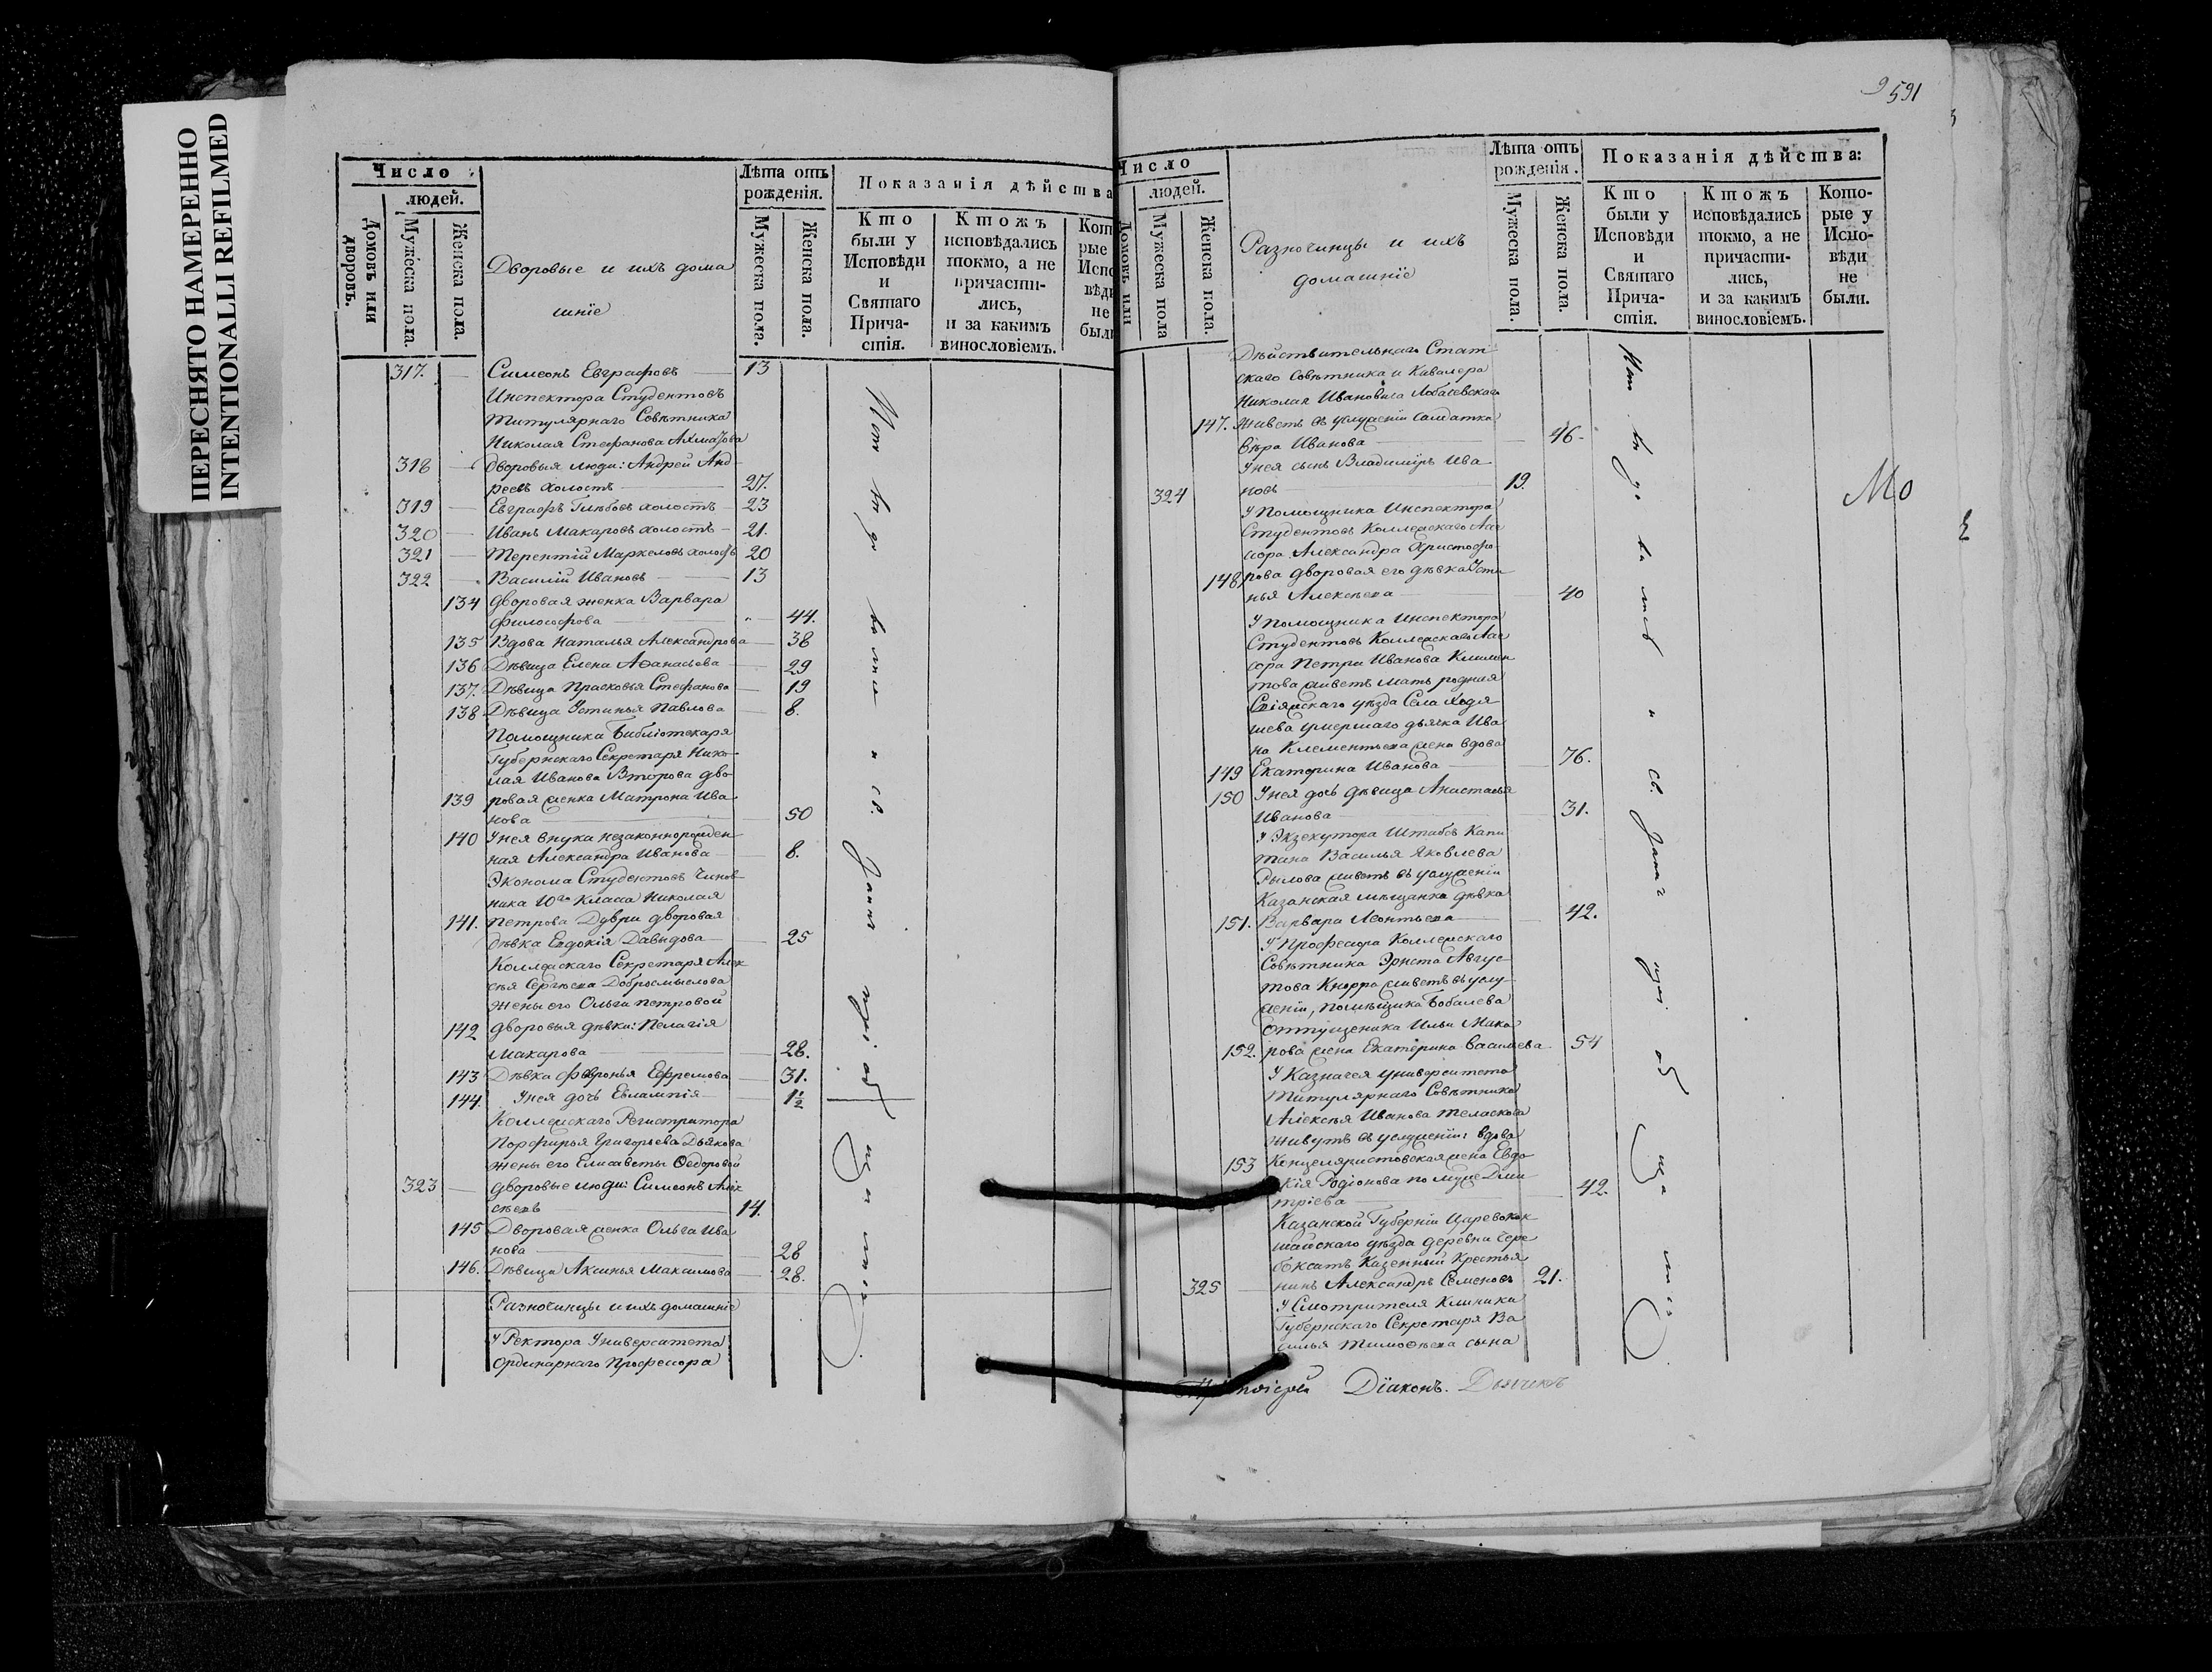 ПЕРЕСНЯТО НАМЕРЕННО
INTENTIONALLI REFILMED
Число
людей.
Домовъ или дворовъ.
Мужеска пола.
Женска пола.
Дворовые и ихъ дома
шніе
Лѣта отъ
рожденія.
Мужеска пола.
Женска пола.
Показанія дѣйства
Кто
были у
Исповѣди
и
Святаго
Прича-
стія.
Ктожъ
исповѣдались
токмо, а не
причасти-
лись,
и за какимъ
винословіемъ.
Кот
рые
Испо
вѣди
не
были
317. Симеонъ Евграфовъ 13
Инспектора Студентовъ
Титулярнаго Совѣтника
Николая Стефанова Алмазова
318 дворовыя люди: Андрей Анд
реевъ холостъ 27.
319 Евграфъ Глѣбовъ холостъ 23
320 Иванъ Макаровъ холостъ 21.
321 Терентій Маркеловъ холостъ 20
322 Василій Ивановъ 13
134 дворовая женка Варвара
Философова 44.
135 Вдова Наталья Александрова 38
136 Дѣвица Елена Аѳанасьева 29
137. Дѣвица Прасковья Стефанова 19
138 Дѣвица Устинья Павлова 8.
Помощника Библіотекаря
Губернскаго Секретаря Нико-
лая Иванова Второва дво
139 ровая женка Матрона Ива
нова 50
140 У нея внука незаконнорожден
ная Александра Иванова 8.
Эконома Студентовъ Чинов-
ника 10го Класса Николая
141. Петрова дворовая
дѣвка Евдокія Давыдова 25
Коллежскаго Секретаря Алек
сѣя Сергѣева Добросмыслова
жены его Ольги Петровой
142 дворовыя дѣвки: Пелагія
Макарова 28.
143 Дѣвка Февронья Ефремова 31.
144. У нея дочь Евлампія 1½
Коллежскаго Регистратора
Порфирья Григорьева Дьякова
жены его Елисаветы Ѳедоровой
323 дворовые люди: Симеонъ Алек
сѣевъ 14.
145 Дворовая женка Ольга Ива
нова 28
146. Дѣвица Аксинья Максимова 28.
Разночинцы и ихъ домашніе
У Ректора Университета
Ординарнаго Профессора
9 591
Число
людей.
Домовъ или
Мужеска пола
Женска пола.
Разночинцы и ихъ
домашніе
Лѣта отъ
рожденія.
Мужеска пола.
Женска пола.
Показанія дѣйства:
Кто
были у
Исповѣди
и
Святаго
Прича-
стія.
Ктожъ
исповѣдались
токмо, а не
причасти-
лись,
и за какимъ
винословіемъ.
Кото-
рые у
Испо-
вѣди
не
были.
Дѣйствительнаго Стат
скаго Совѣтника и Кавалера
Николая Ивановича Лобачевскаго
147. живетъ въ услуженіи солдатка
Вѣра Иванова 46.
У нея сынъ Владимиръ Ива
324 новъ 19.
У Помощника Инспектора
Студентовъ Коллежскаго Асес
сора Александра Христофо-
148 рова дворовая его дѣвка Усти
нья Алексѣева 40
У помощника Инспектора
Студентовъ Коллежскаго Асес
сора Петра Иванова Климен
това живетъ мать родная
Свіяжскаго уѣзда Села Ходя
шева умершаго дьячка Ива
на Клементьева жена вдова
149 Екатерина Иванова 76.
150 У нея дочь дѣвица Анастасья
Иванова 31.
У Экзекутора Штабсъ Капи
тана Василья Яковлева
Рылова живетъ въ услуженіи
Казанская мѣщанка дѣвка
151. Варвара Леонтьева 42.
У Профессора Коллежскаго
Совѣтника Эрнста Авгус-
това Кнорра живетъ въ услу-
женіи, помѣщика Бобалева
отпущеника Ильи Мака
152. рова жена Екатерина Васильева 54
У Казначея университета
Титулярнаго Совѣтника
Алексѣя Иванова
живутъ въ услуженіи: вдова
153 Канцеляристовская жена Евдо
кія Родіонова по мужу Дми
тріева 42.
Казанской Губерніи Царевокок
шайскаго уѣзда деревни Чере
Казенный Крестья
325 нинъ Александръ Семеновъ 21.
У Смотрителя Клиники
Губернскаго Секретаря Ва
силья Тимоѳѣева сына
Діаконъ. Дьячекъ